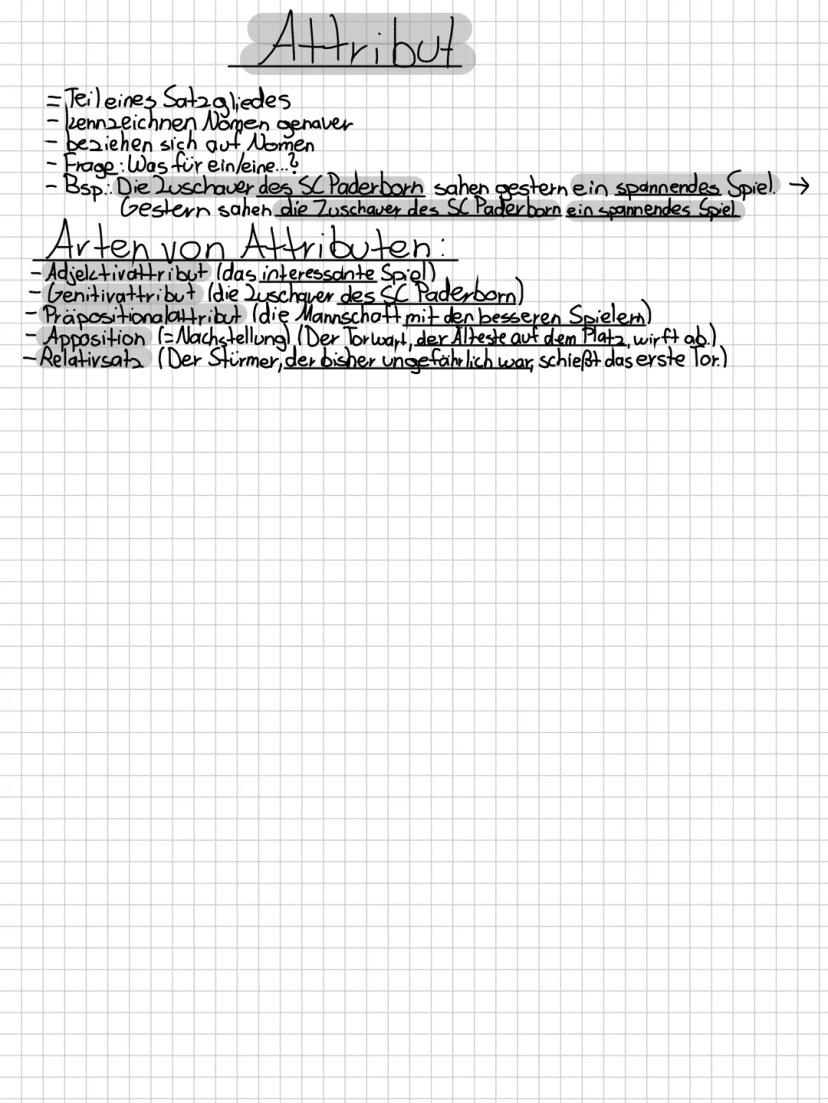 Attribut
= Teil eines Satzgliedes
- kennzeichnen Nomen genauer
- beziehen sich auf Nomen
- Frage: Was für ein/eine...?
- Bsp.: Die Zuschauer des SC Paderborn sahen gestern ein spannendes Spiel. →
Gestern sahen die Zuschauer des SC Paderborn ein spannendes Spiel
Arten von Attributen:
- Adjektivattribut (das interessante Spiel)
- Genitivattribut (die Zuschauer des SC Paderborn)
- Präpositionalattribut (die Mannschaft mit den besseren Spielern)
- Apposition (=Nachstellung) (Der Torwart, der Älteste auf dem Platz, wirft ab.)
- Relativsatz (Der Stürmer, der bisher ungefährlich war, schießt das erste Tor.)